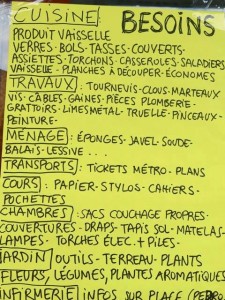 CUISINE: BESOINS
PRODUIT VAISSELLE
VERRES. BOLS. TASSES. COUVERTS.
ASSIETTES. TORCHONS. CASSEROLES. SALADIERS
VAISSELLE. PLANCHES À DÉCOUPER. ÉCONOMES
TRAVAUX: TOURNEVIS. CLOUS. MARTEAUX
VIS. CÂBLES. GAINES. PIÈCES PLOMBERIE.
GRATTOIRS. LIMES MÉTAL. TRUELLE. PINCEAUX.
PEINTURE.
MÉNAGE: ÉPONGES. JAVEL. SOUDE.
BALAIS. LESSIVE...
TRANSPORTS: TICKETS MÉTRO. PLANS
COURS: PAPIER. STYLOS. CAHIERS.
POCHETTES
CHAMBRES: SACS COUCHAGE PROPRES.
COUVERTURES. DRAPS. TAPIS SOL. MATELAS.
LAMPES. TORCHES ÉLEC. + PILES.
JARDIN OUTILS. TERREAU. PLANTS
FLEURS, LÉGUMES, PLANTES AROMATIQUES
INFIRMERIE INFOS SUR PLACE (PEDRO